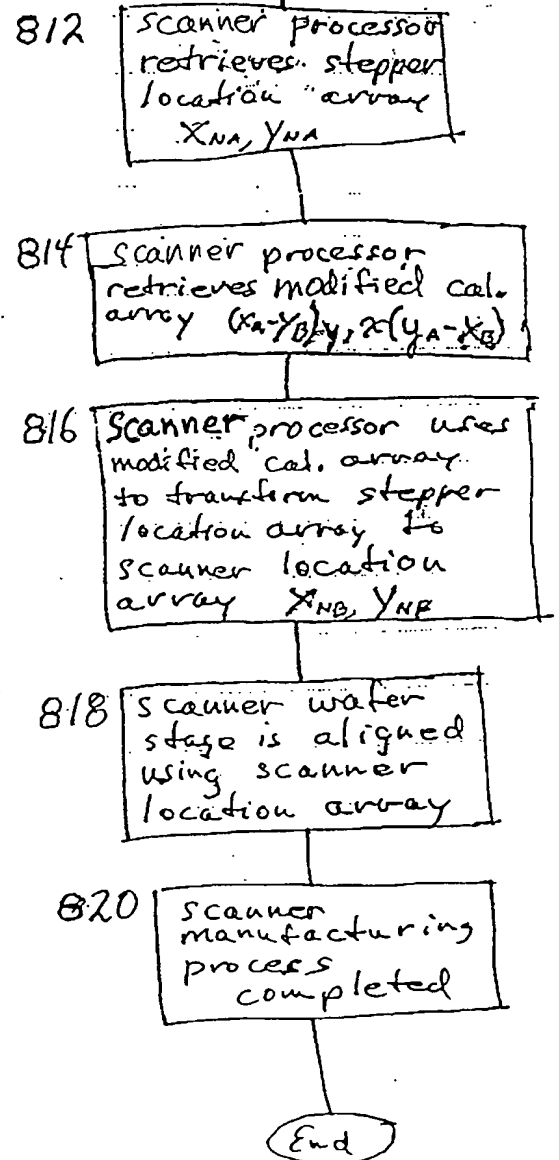 812
scanner processor
retrieves stepper
location array
X_NA, Y_NA
814
scanner processor
retrieves modified cal.
array (x_A-y_B)y, x(y_A-x_B)
816
scanner processor uses
modified cal. array
to transform stepper
location array to
scanner location
array X_NB, Y_NB
818
scanner wafer
stage is aligned
using scanner
location array
820
scanner
manufacturing
process
completed
End